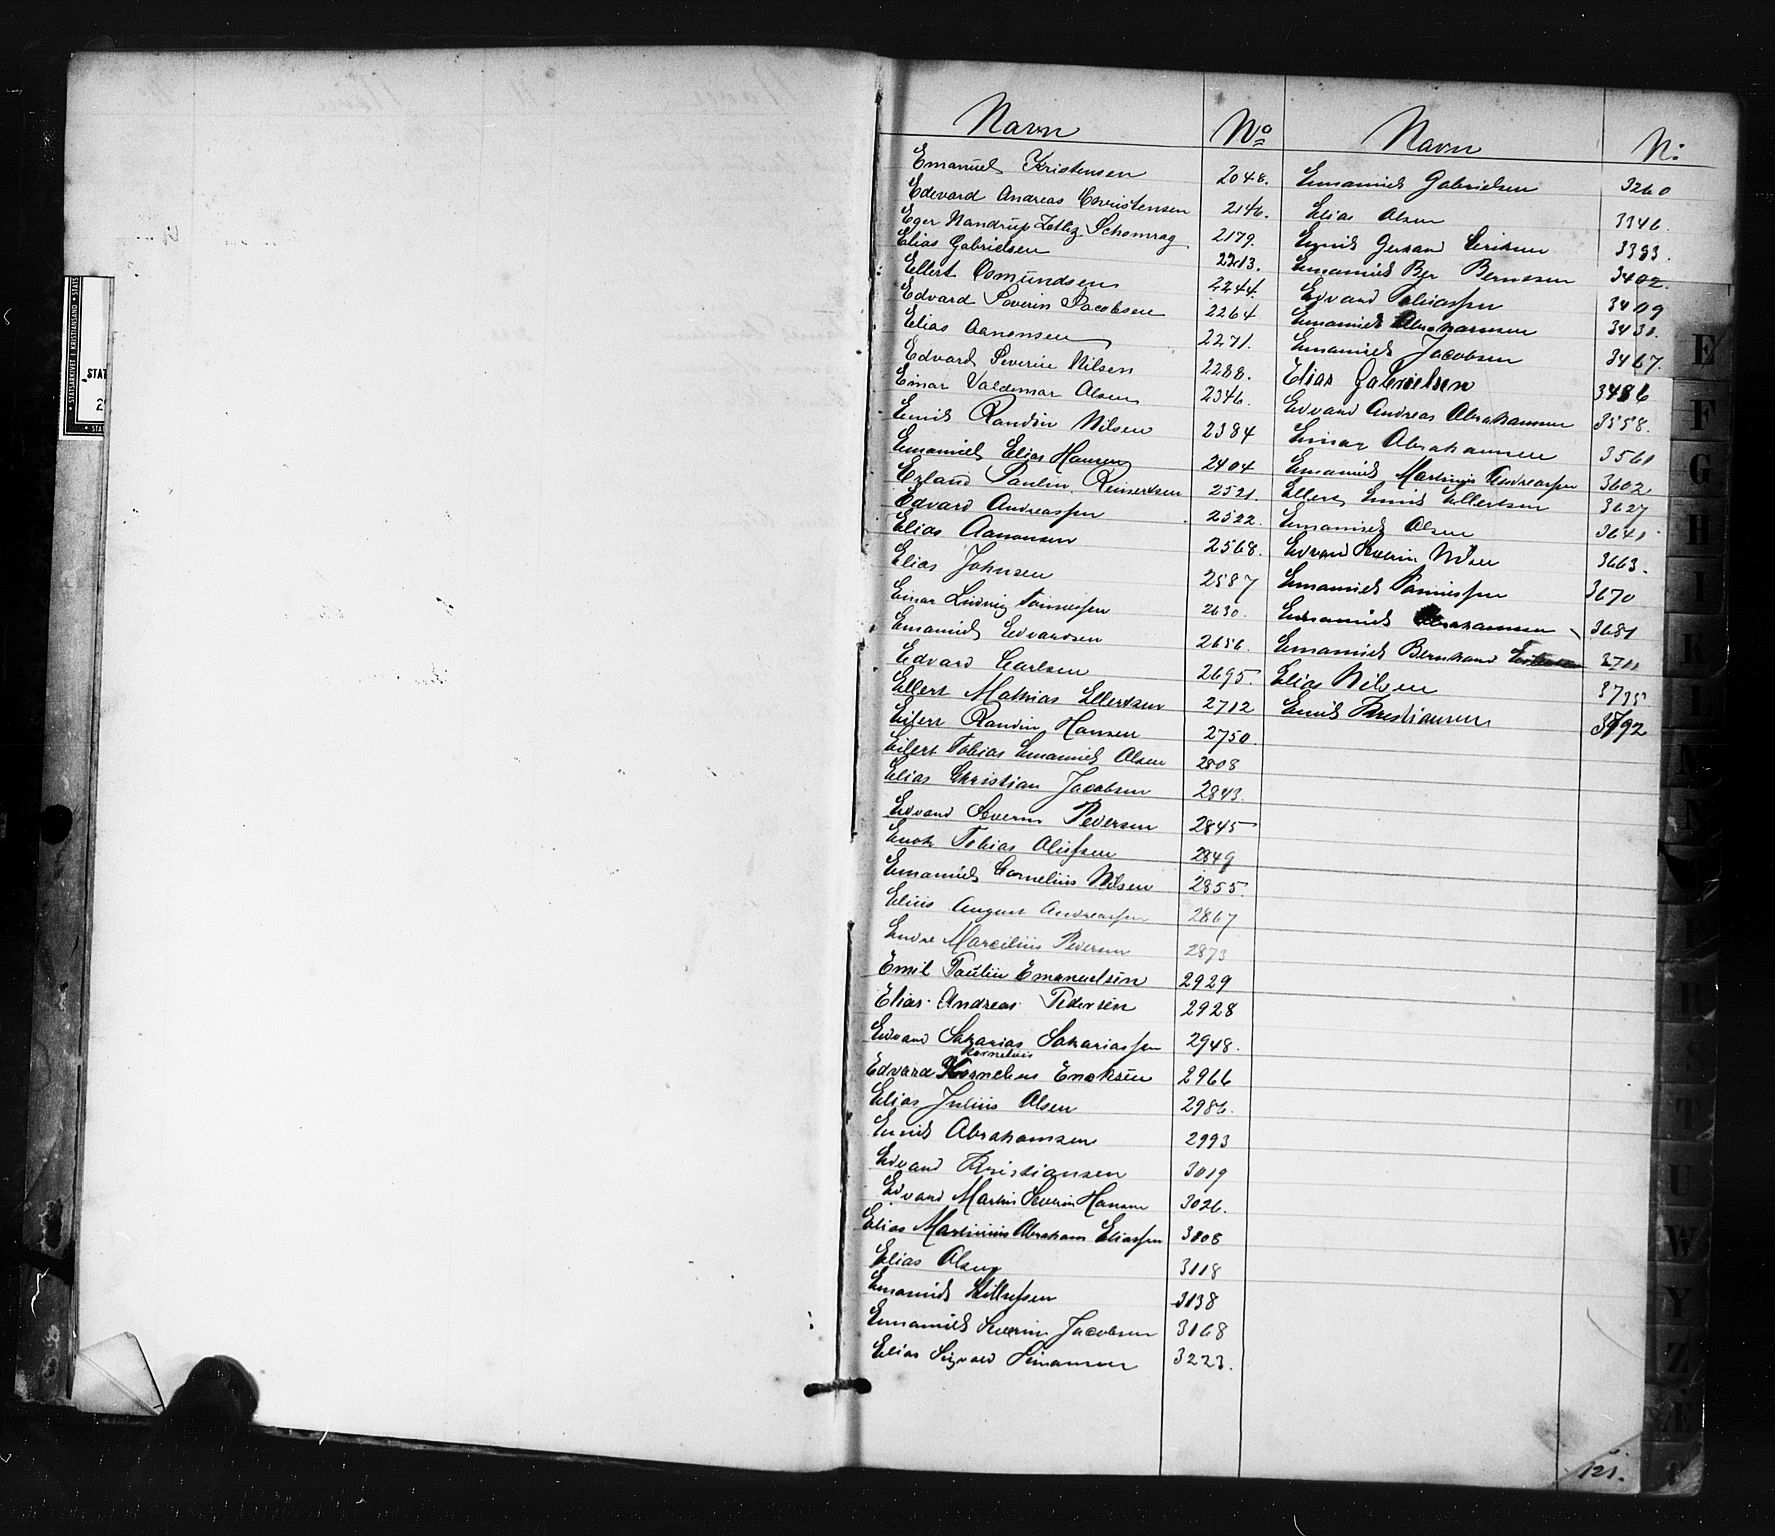 Navn No
Emanuel Kristensen 2048.
Edevard Andreas Christensen 2146.
Eger Nandrup Zetlitz Schomrag 2179.
Elias Gabrielsen 2213.
Ellert Osmundsen 2244.
Edvard Severin Jacobsen 2264
Elias Aanensen 2271.
Edvard Severin Nilsen 2288.
Einar Valdemar Olsen 2346.
Emil Randin Nilsen 2384
Emaniel Elias Hansen 2404
Erland Paulin Reinertsen 2521.
Edvard Andreassen 2522.
Elias Aanensen 2568.
Elias Johnsen 2587
Einar Ludvig Tønnessen 2630.
Emaniel Edvardsen 2656.
Edvard Carlsen 2695.
Ellert Mathias Ellertsen 2712
Eilert Randin Hansen 2750.
Eilert Tobias Emaniel Olsen 2808
Elias Christian Jacobsen 2843.
Edvard Severin Pedersen 2845
Enok Tobias Olufsen 2849
Emaniel Cornelius Nilsen 2855
Elius August Andreassen 2867
Endre Marcilius Pedersen 2873
Emil Paulin Emanuelsen 2929
Elias Andreas Pedersen 2928
Edvard Sakarias Sakariassen 2948.
Kornelius
Edvard Kornelius Enoksen 2966
Elias Julius Olsen 2986.
Emil Abrahamsen 2993
Edvard Kristiansen 3019
Edvard Martin Severin Hansen 3026.
Elias Martinius Abraham Eliassen 3108
Elias Olsen 3118
Emaniel 3138
Emaniel Severin Jacobsen 3168
Elias Sigvald Simonsen 3223.
Navn No
Emaniel Gabrielsen 3260
Elias Olsen 3346.
Emil Gerhard Eriksen 3393.
Emaniel Ber Berntsen 3402.
Edvard Tobiassen 3409
Emaniel Abrahamsen 3430.
Emaniel Jacobsen 3467.
Elias Gabrielsen 3486
Edvard Andreas Abrahamsen 3558.
Einar Abrahamsen 3561
Emaniel Martinius Andreassen 3602
Ellert Emil Ellertsen 3627
Emaniel Olsen 3641
Edvard Severin Nilsen 3663.
Emaniel Tønnessen 3670
Emaniel Abrahamsen 3681
Emaniel Bernhard 3711
Elias Nilsen 3735
Emil Kristiansen 3792
121.
STATSARKIVET I KRISTIANSAND
STAT
E
F
G
H
I
K
L
M
N
P
S
T
U
W
Y
Z
Æ